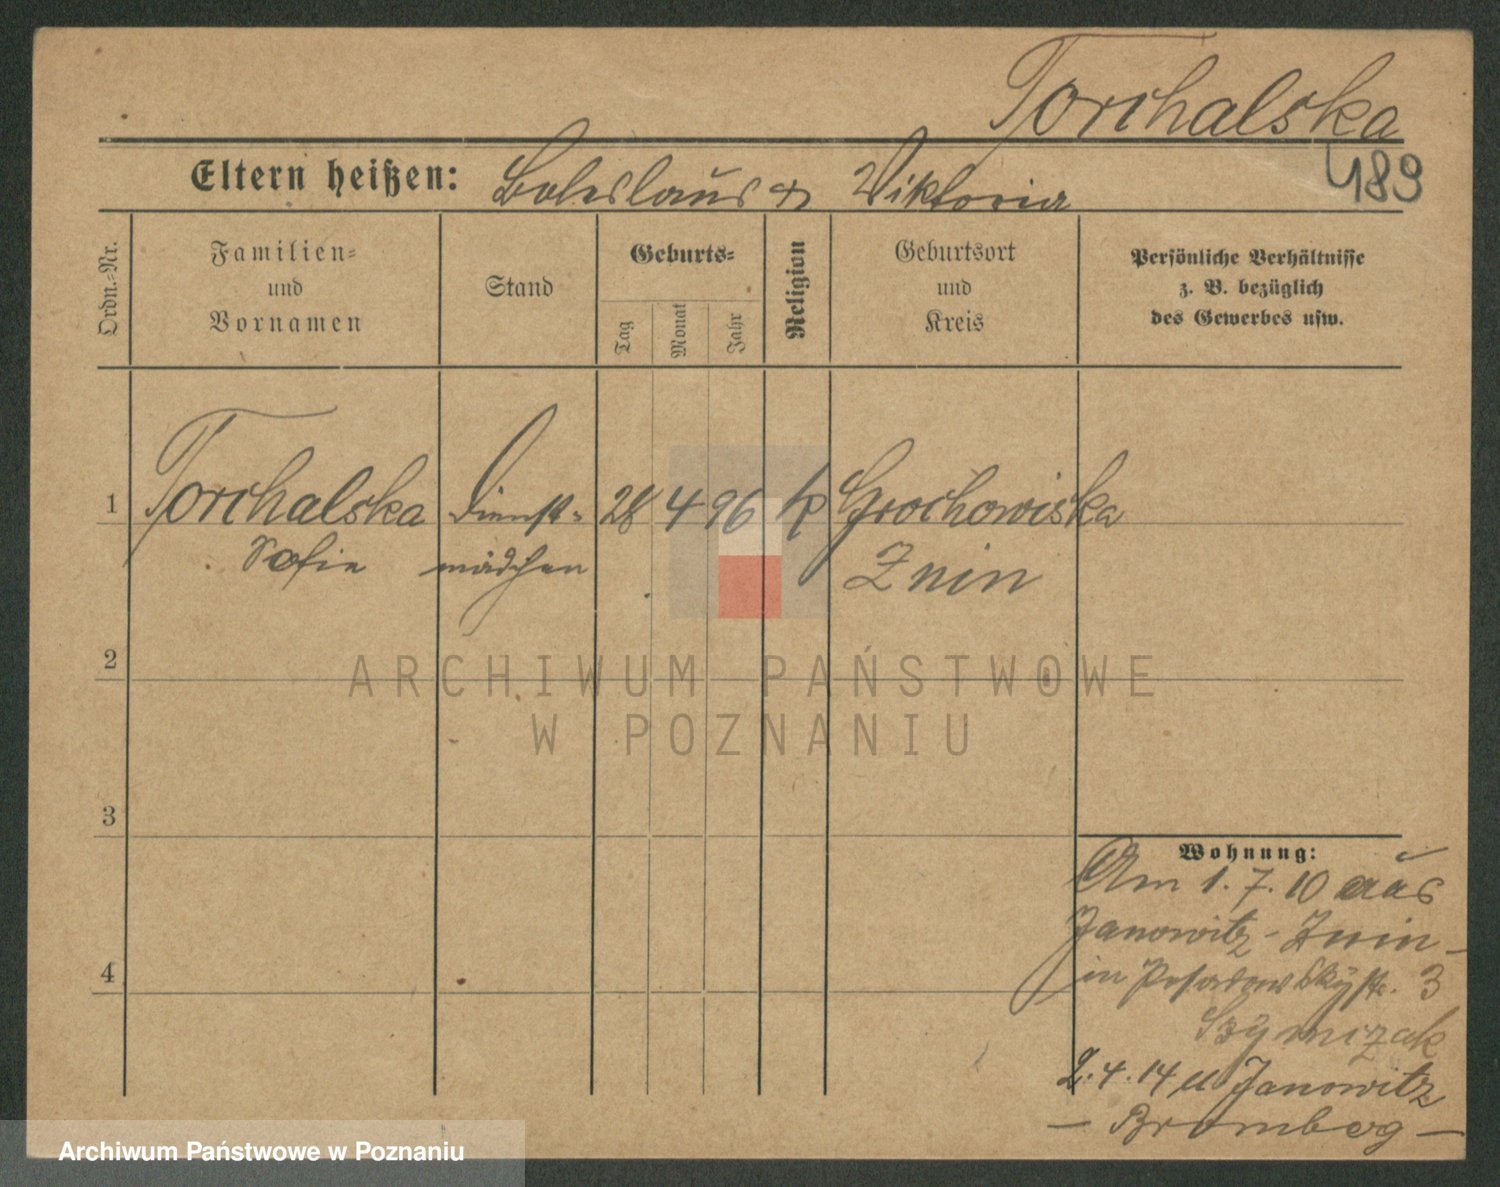 Torchalska
489
Eltern heißen: Boleslaus & Wiktoria
Ordn.-Nr.
Familien-
und
Vornamen
Stand
Geburts-
Tag
Monat
Jahr
Religion
Geburtsort
und
Kreis
Persönliche Verhältnisse
z. B. bezüglich
des Gewerbes usw.
1 Torchalska Dienst- 28 4 96 k Grochowiska
Sofie mädchen Znin
2
3
4
Wohnung:
Am 1. 7. 10 aus
Janowitz - Znin -
in Posadowskystr. 3
Szymczak
2. 4. 14 u Janowitz
- Bromberg -
ARCHIWUM PAŃSTWOWE
W POZNANIU
Archiwum Państwowe w Poznaniu